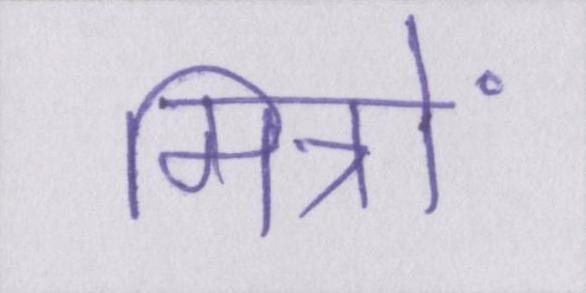 मित्रों